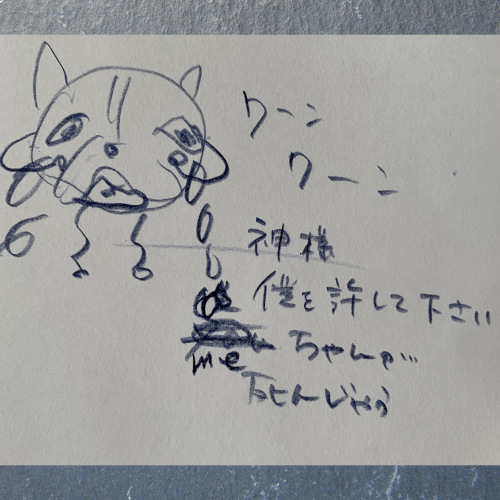 ワーン
ワーン
神様
僕を許して下さい
me ちゃんが…
死んじゃう